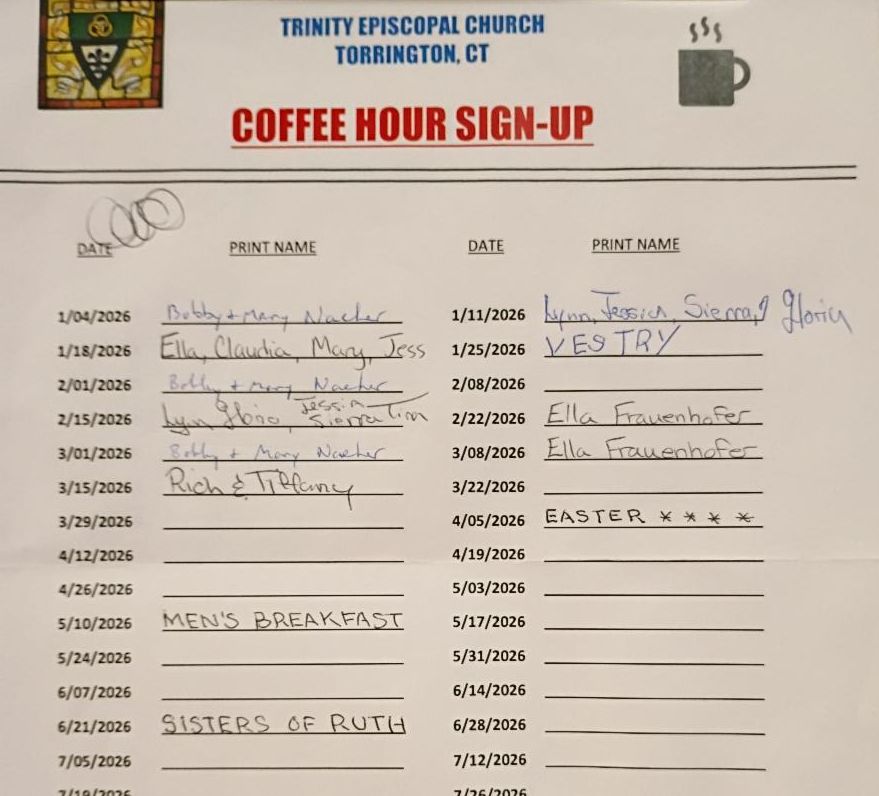 TRINITY EPISCOPAL CHURCH
TORRINGTON, CT
COFFEE HOUR SIGN-UP
DATE PRINT NAME DATE PRINT NAME
1/04/2026 Bobby + Mary Nacher 1/11/2026 Lynn, Jessica, Sierra, Gloria
1/18/2026 Ella, Claudia, Mary, Jess 1/25/2026 VESTRY
2/01/2026 Bobby + Mary Nacher 2/08/2026
2/15/2026 Lynn Gloria, Jessica Sierra Tim 2/22/2026 Ella Frauenhofer
3/01/2026 Bobby + Mary Nacher 3/08/2026 Ella Frauenhofer
3/15/2026 Rich & Tiffany 3/22/2026
3/29/2026 4/05/2026 EASTER * * * *
4/12/2026 4/19/2026
4/26/2026 5/03/2026
5/10/2026 MEN'S BREAKFAST 5/17/2026
5/24/2026 5/31/2026
6/07/2026 6/14/2026
6/21/2026 SISTERS OF RUTH 6/28/2026
7/05/2026 7/12/2026
7/19/2026 7/26/2026